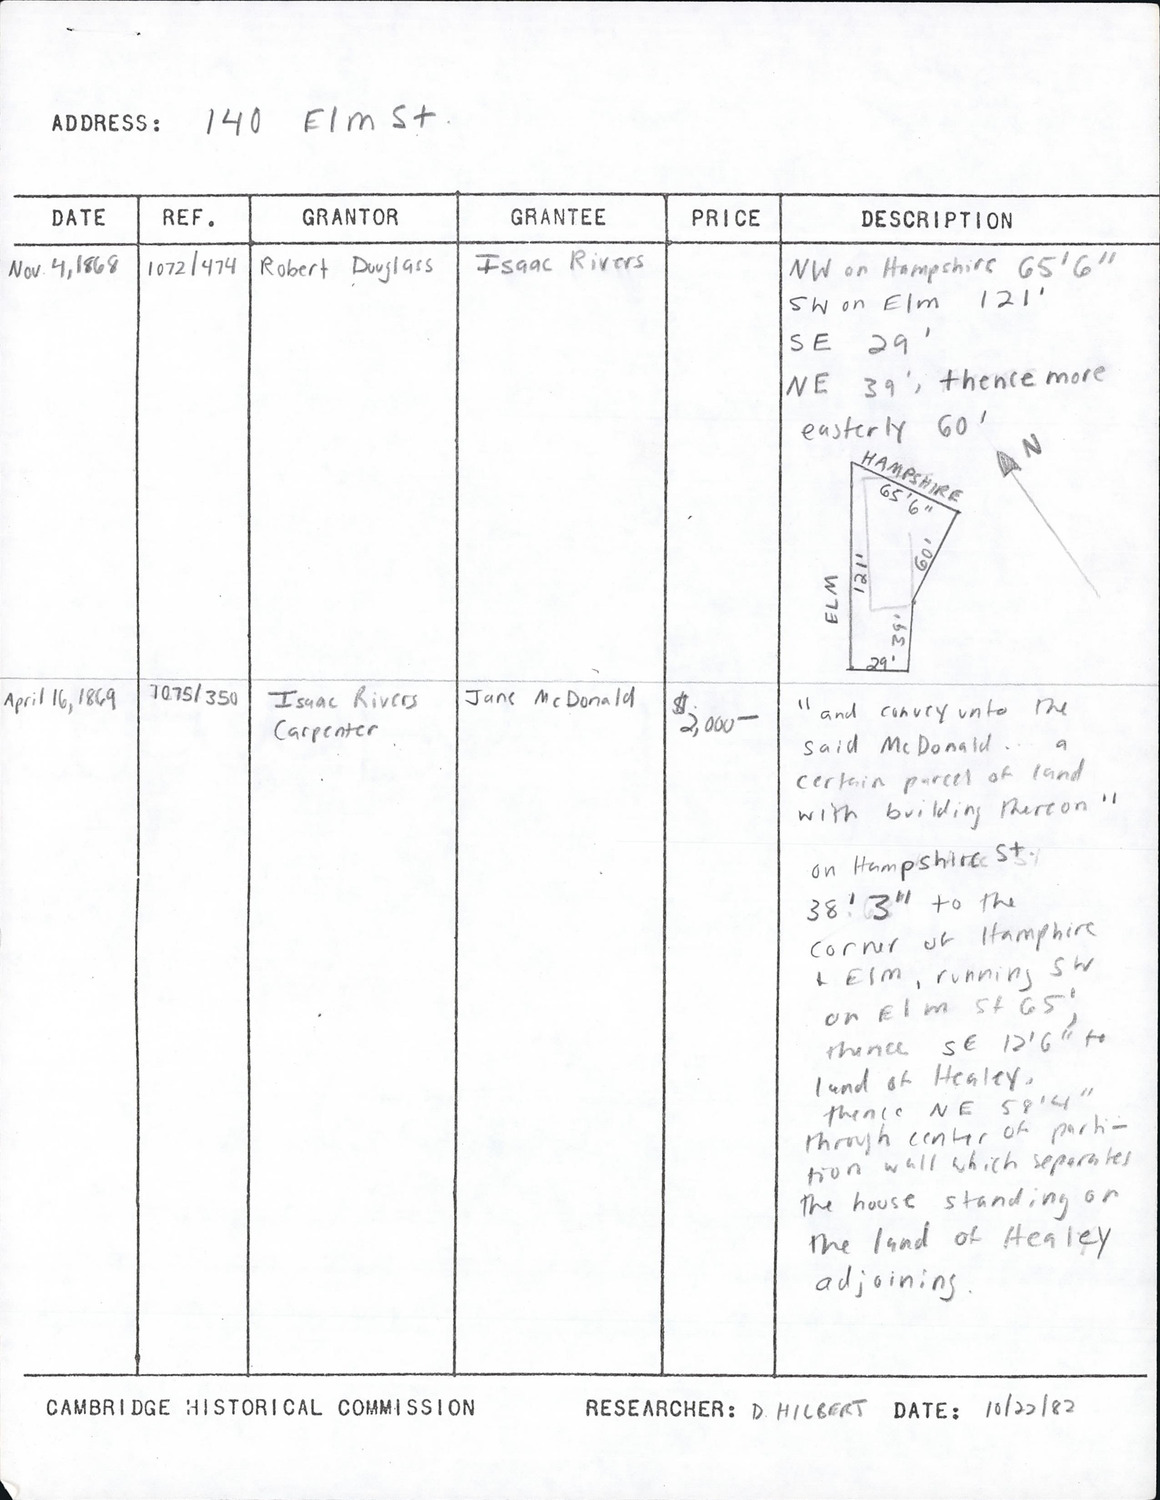 ADDRESS: 140 Elm St.
DATE REF. GRANTOR GRANTEE PRICE DESCRIPTION
Nov. 4, 1868 1072/474 Robert Douglass Isaac Rivers
NW on Hampshire 65'6"
SW on Elm 121'
SE 29'
NE 39', thence more
easterly 60'
N
HAMPSHIRE
65'6"
60'
121'
ELM
39'
29'
April 16, 1869 1075/350 Isaac Rivers Jane McDonald $
Carpenter 2,000—
"and convey unto the
said McDonald... a
certain parcel of land
with building thereon"
on Hampshire St.
38' 3" to the
corner of Hamphire
+ Elm, running SW
on Elm St 65',
thence SE 12'6" to
land of Healey.
thence NE 58'4"
through center of parti-
tion wall which separates
the house standing on
the land of Healey
adjoining.
CAMBRIDGE HISTORICAL COMMISSION RESEARCHER: D. HILBERT DATE: 10/22/82